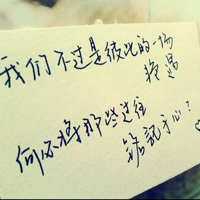 我们不过是彼此的一场
换愚
何不将那些过往
铭记于心？